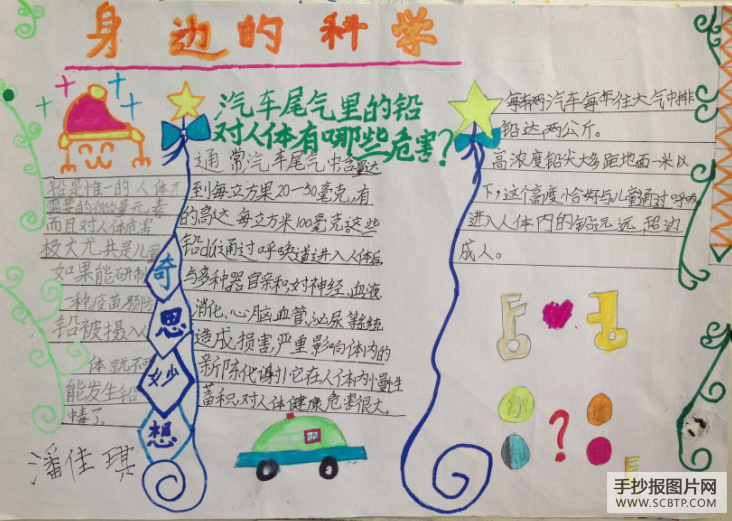 身边的科学
汽车尾气里的铅
对人体有哪些危害?
铅是惟一的人体不
需要的微量元素
而且对人体危害
极大尤其是儿童
如果能研制
一种疫苗预防
铅被摄入人
体就不可
能发生铅
中毒了。
潘佳琪
奇
思
妙
想
通常汽车尾气中含量达
到每立方米20-30毫克,有
的高达每立方米100毫克这些
铅通过呼吸道进入人体后
与多种器官亲和对神经、血液、
消化、心脑、血管、泌尿等系统
造成损害,严重影响体内的
新陈代谢,它在人体内慢性
蓄积,对人体健康危害很大。
每辆汽车每年往大气中排
铅达两公斤。
高浓度铅尘大多距地面一米以
下,这个高度恰好与儿童通过呼吸
进入人体内的铅远远超过
成人。
你
知
?
手抄报图片网
WWW.SCBTP.COM